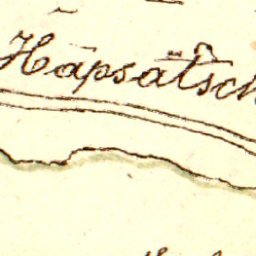 Häpsätsch